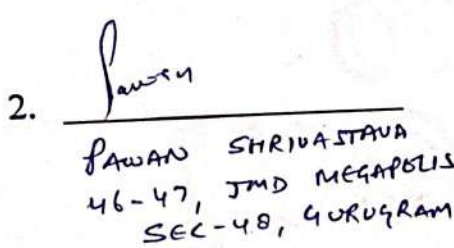 2. Pawan
PAWAN SHRIVASTAVA
46-47, JMD MEGAPOLIS
SEC-48, GURUGRAM